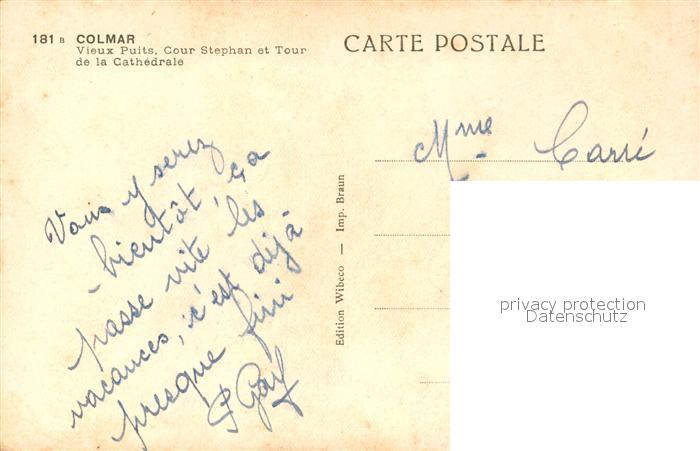 181 B COLMAR
Vieux Puits, Cour Stephan et Tour
de la Cathédrale
CARTE POSTALE
Vous y serez
bientôt, ça
passe vite les
vacances, c'est déjà
presque fini
Edition Wibeco — Imp. Braun
Mme Carré
privacy protection
Datenschutz